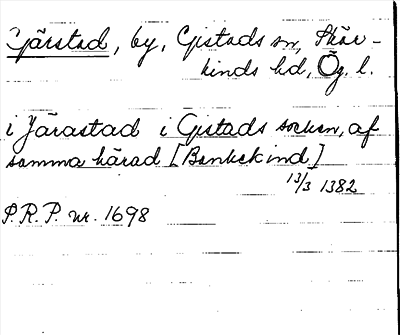 Gärstad, by, Gistads sn, Skär-
kinds hd, Ög. l.
i Järastad i Gistads socken, af
samma härad [Bankekind]
13/3 1382
S.R.P. nr. 1698